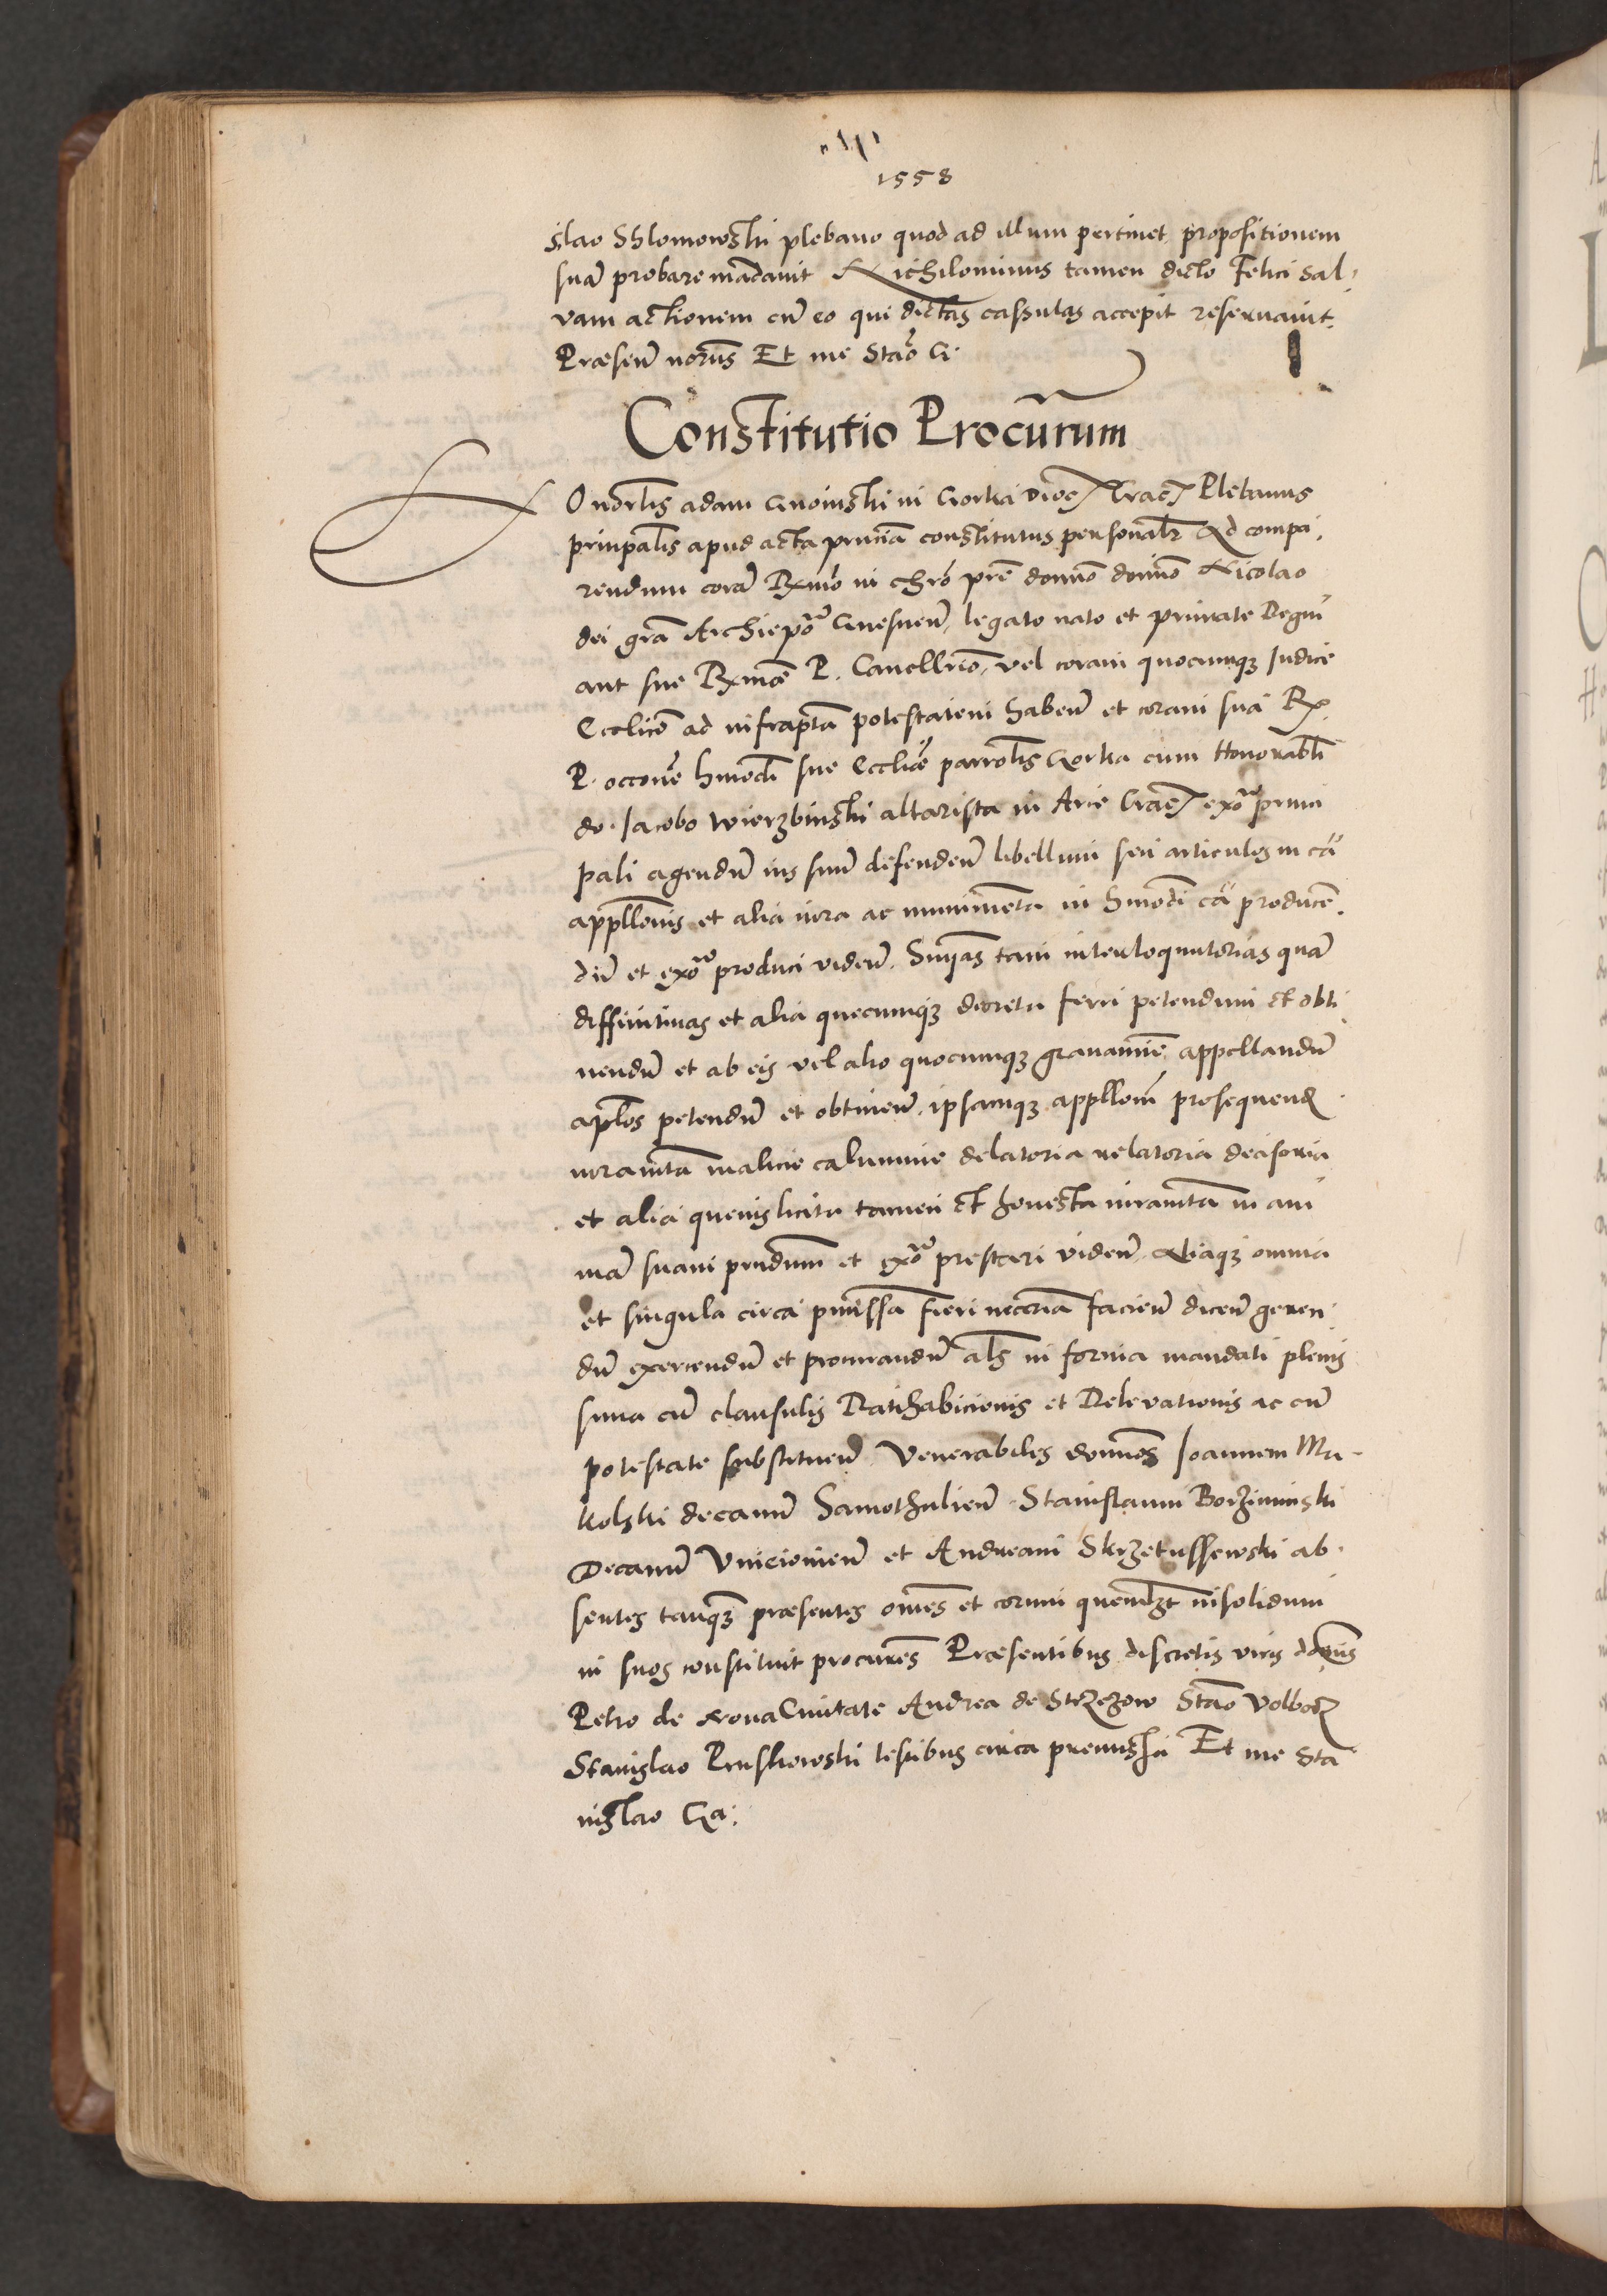 1558
slao Shlomowski plebano quod ad illum pertinet propositionem
suã probare mãdauit Nichilominus tamen dicto Felici sal,
vam actionem cũ eo qui dictas cassulas accepit reseruauit.
Præseñ noruṡ Et me Stão G.
Constitutio Procurum
Onorlis adam Gnoinski in Gorka dioc Crac Plebanus
prinpalis apud acta pnũa constitutus personalr Ad compa,
rendum corã Rxmo in chro pre domno domno Nicolao
dei gra Archiepõ Gnesneñ, legato nato et primate Regni
aut sue Rxmae P. Cancellrio, vel coram quocumqz Iudice
Ecclico ad infraptã potestatem habeñ et coram sua Rx
P. occone hmodi sue Ecclie parrolis Gorka cum Honorabli
do. Iacobo Wierzbinski altarista in Arce Crac exõ princi
pali agendũ ius suũ defendeñ libellum seu articulos in cã
appllonis et alia iura ac munimenta in hmodi cã producẽ,
dũ et exõ produci videñ, Sniãs tam interloqutorias quã
diffinitiuas et alia quecumqz decreta ferri petendum et obti
nendũ et ab eis vel alio quocumqz grauamine appellandũ
aplos petendũ et obtineñ, ipsamqz appllonem prosequend
iuramta malicie calumnie delatoria relatoria decisoria
et alia queuis licita tamen et honesta iuramta in ani
mã suam prndum et exõ prestari videñ Aliaqz omnia
et singula circa pmissa fieri necria facieñ diceñ geren,
dũ exercendũ et procurandũ als in forma mandati plenis
sima cũ clausulis Ratihabicionis et Releuationis ac cũ
potestate substitueñ Venerabiles domnos Ioannem Mi-
kolski decanũ Samothulieñ Stanislaum Borziminski
Decanũ Vnieiouieñ et Andream Skrzetussewski ab,
sentes tanqz præsentes omnes et eorum quemlzt insolidum
in suos constituit procures Præsentibus discretis viris ddnis
Petro de Noua Ciuitate Andrea de Strzezow Stão Volborz
Stanislao Pruskowski testibus circa premissa Et me Sta
nislao Ga: